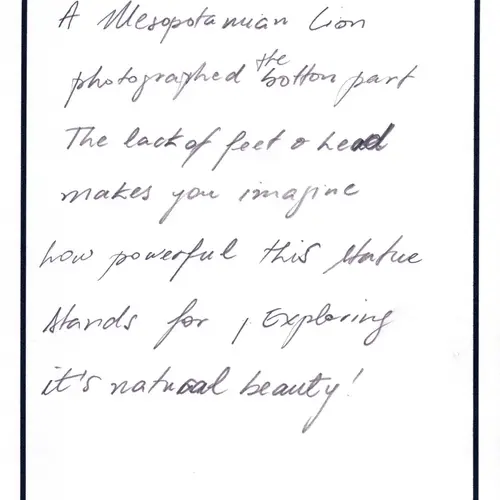 A Mesopotamian Lion
photographed the botton part
The lack of feet & head
makes you imagine
how powerful this statue
stands for, Exploring
it's natural beauty!